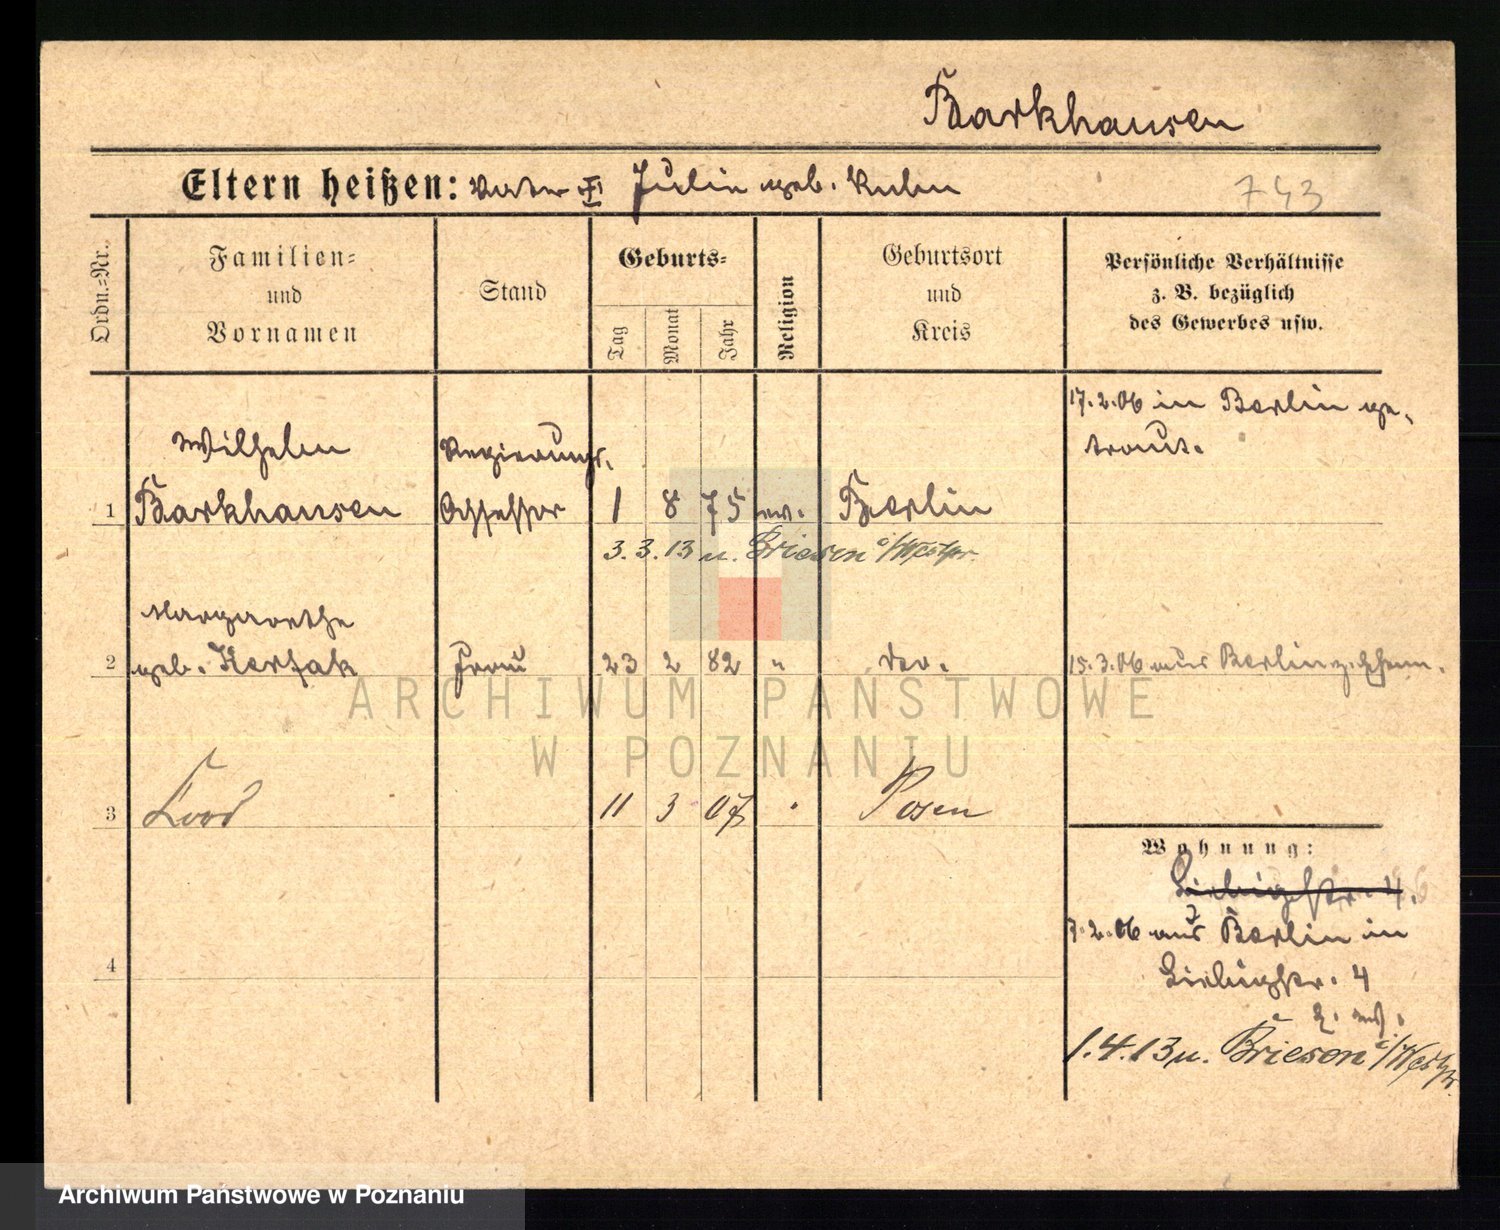 Barkhausen
Eltern heißen: Vater Julie geb. Kuhn
743
Ordn.-Nr.
Familien-
und
Vornamen
Stand
Geburts-
Tag
Monat
Jahr
Religion
Geburtsort
und
Kreis
Persönliche Verhältnisse
z. B. bezüglich
des Gewerbes usw.
17.2.06 in Berlin ge-
traut.
Wilhelm Regierungs-
1 Barkhausen Assessor 1 8 75 ev. Berlin
3.3.13 u. Briesen i/Westpr.
Margarethe
2 geb. Frau 23 2 82 " Berlin
15.3.06 aus Berlin
3 11 3 07 " Posen
Wohnung:
Liebigstr. 4.
7.2.06 aus Berlin in
Liebigstr. 4
4
1.4.13 u. Briesen i/Westpr.
ARCHIWUM PAŃSTWOWE
W POZNANIU
Archiwum Państwowe w Poznaniu